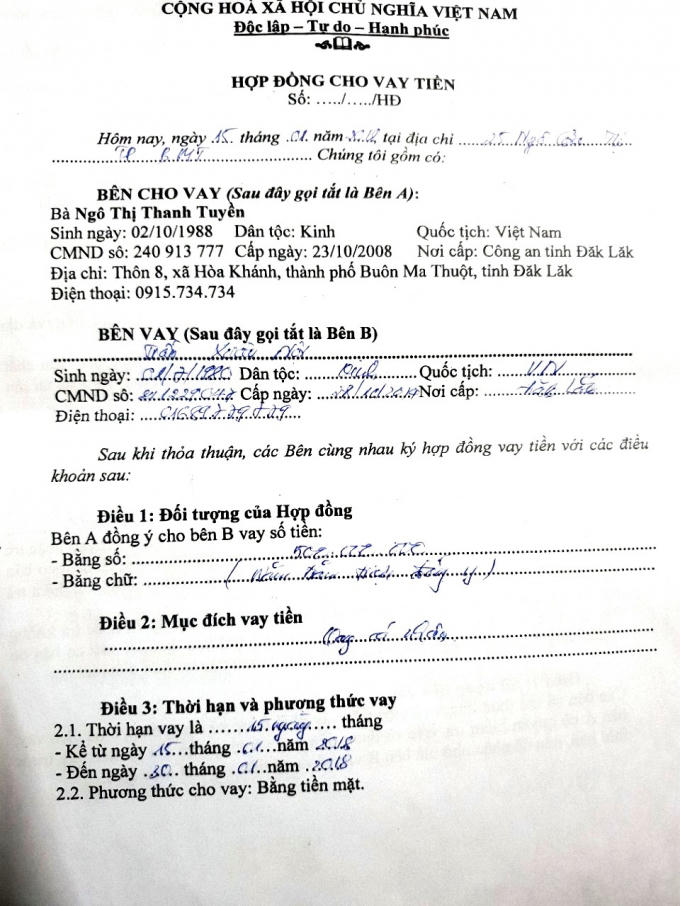 CỘNG HOÀ XÃ HỘI CHỦ NGHĨA VIỆT NAM
Độc lập – Tự do – Hạnh phúc
HỢP ĐỒNG CHO VAY TIỀN
Số: ...../...../HĐ
Hôm nay, ngày 15 tháng 01 năm 2018, tại địa chỉ 25 Ngô
TP BMT Chúng tôi gồm có:
BÊN CHO VAY (Sau đây gọi tắt là Bên A):
Bà Ngô Thị Thanh Tuyền
Sinh ngày: 02/10/1988 Dân tộc: Kinh Quốc tịch: Việt Nam
CMND số: 240 913 777 Cấp ngày: 23/10/2008 Nơi cấp: Công an tỉnh Đăk Lăk
Địa chỉ: Thôn 8, xã Hòa Khánh, thành phố Buôn Ma Thuột, tỉnh Đăk Lăk
Điện thoại: 0915.734.734
BÊN VAY (Sau đây gọi tắt là Bên B)
Trần
Sinh ngày: Dân tộc: Kinh Quốc tịch: VN
CMND số: Cấp ngày: Nơi cấp: Đăk Lăk
Điện thoại:
Sau khi thỏa thuận, các Bên cùng nhau ký hợp đồng vay tiền với các điều
khoản sau:
Điều 1: Đối tượng của Hợp đồng
Bên A đồng ý cho bên B vay số tiền:
- Bằng số: 500 000 000
- Bằng chữ: (Năm trăm triệu đồng y)
Điều 2: Mục đích vay tiền
Điều 3: Thời hạn và phương thức vay
2.1. Thời hạn vay là 15 ngày tháng
- Kể từ ngày 15 tháng 01 năm 2018
- Đến ngày 30 tháng 01 năm 2018
2.2. Phương thức cho vay: Bằng tiền mặt.